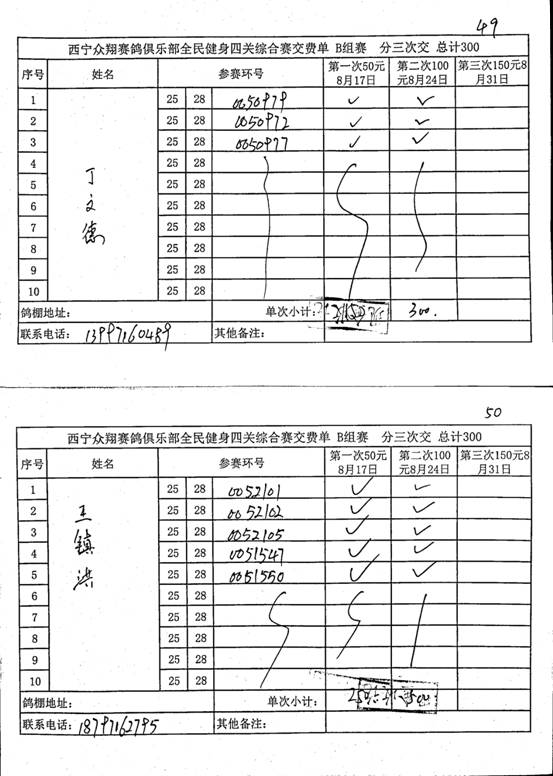 49
西宁众翔赛鸽俱乐部全民健身四关综合赛交费单 B组赛 分三次交 总计300
序号 姓名 参赛环号 第一次50元8月17日 第二次100元8月24日 第三次150元8月31日
丁文德
1 25 28 0050979 ✓ ✓
2 25 28 0050972 ✓ ✓
3 25 28 0050977 ✓ ✓
4 25 28
5 25 28
6 25 28
7 25 28
8 25 28
9 25 28
10 25 28
鸽棚地址: 单次小计: 300.
联系电话: 13997160489 其他备注:
50
西宁众翔赛鸽俱乐部全民健身四关综合赛交费单 B组赛 分三次交 总计300
序号 姓名 参赛环号 第一次50元8月17日 第二次100元8月24日 第三次150元8月31日
王镇洪
1 25 28 0052101 ✓ ✓
2 25 28 0052102 ✓ ✓
3 25 28 0052105 ✓ ✓
4 25 28 0051547 ✓ ✓
5 25 28 0051550 ✓ ✓
6 25 28
7 25 28
8 25 28
9 25 28
10 25 28
鸽棚地址: 单次小计: 250 500
联系电话: 18797162795 其他备注: